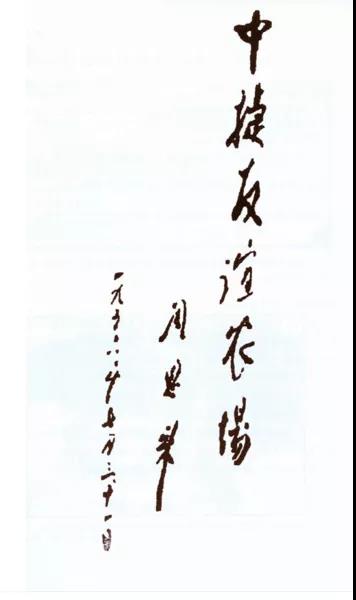 中捷友谊农场
周恩来
一九五六年七月三十一日